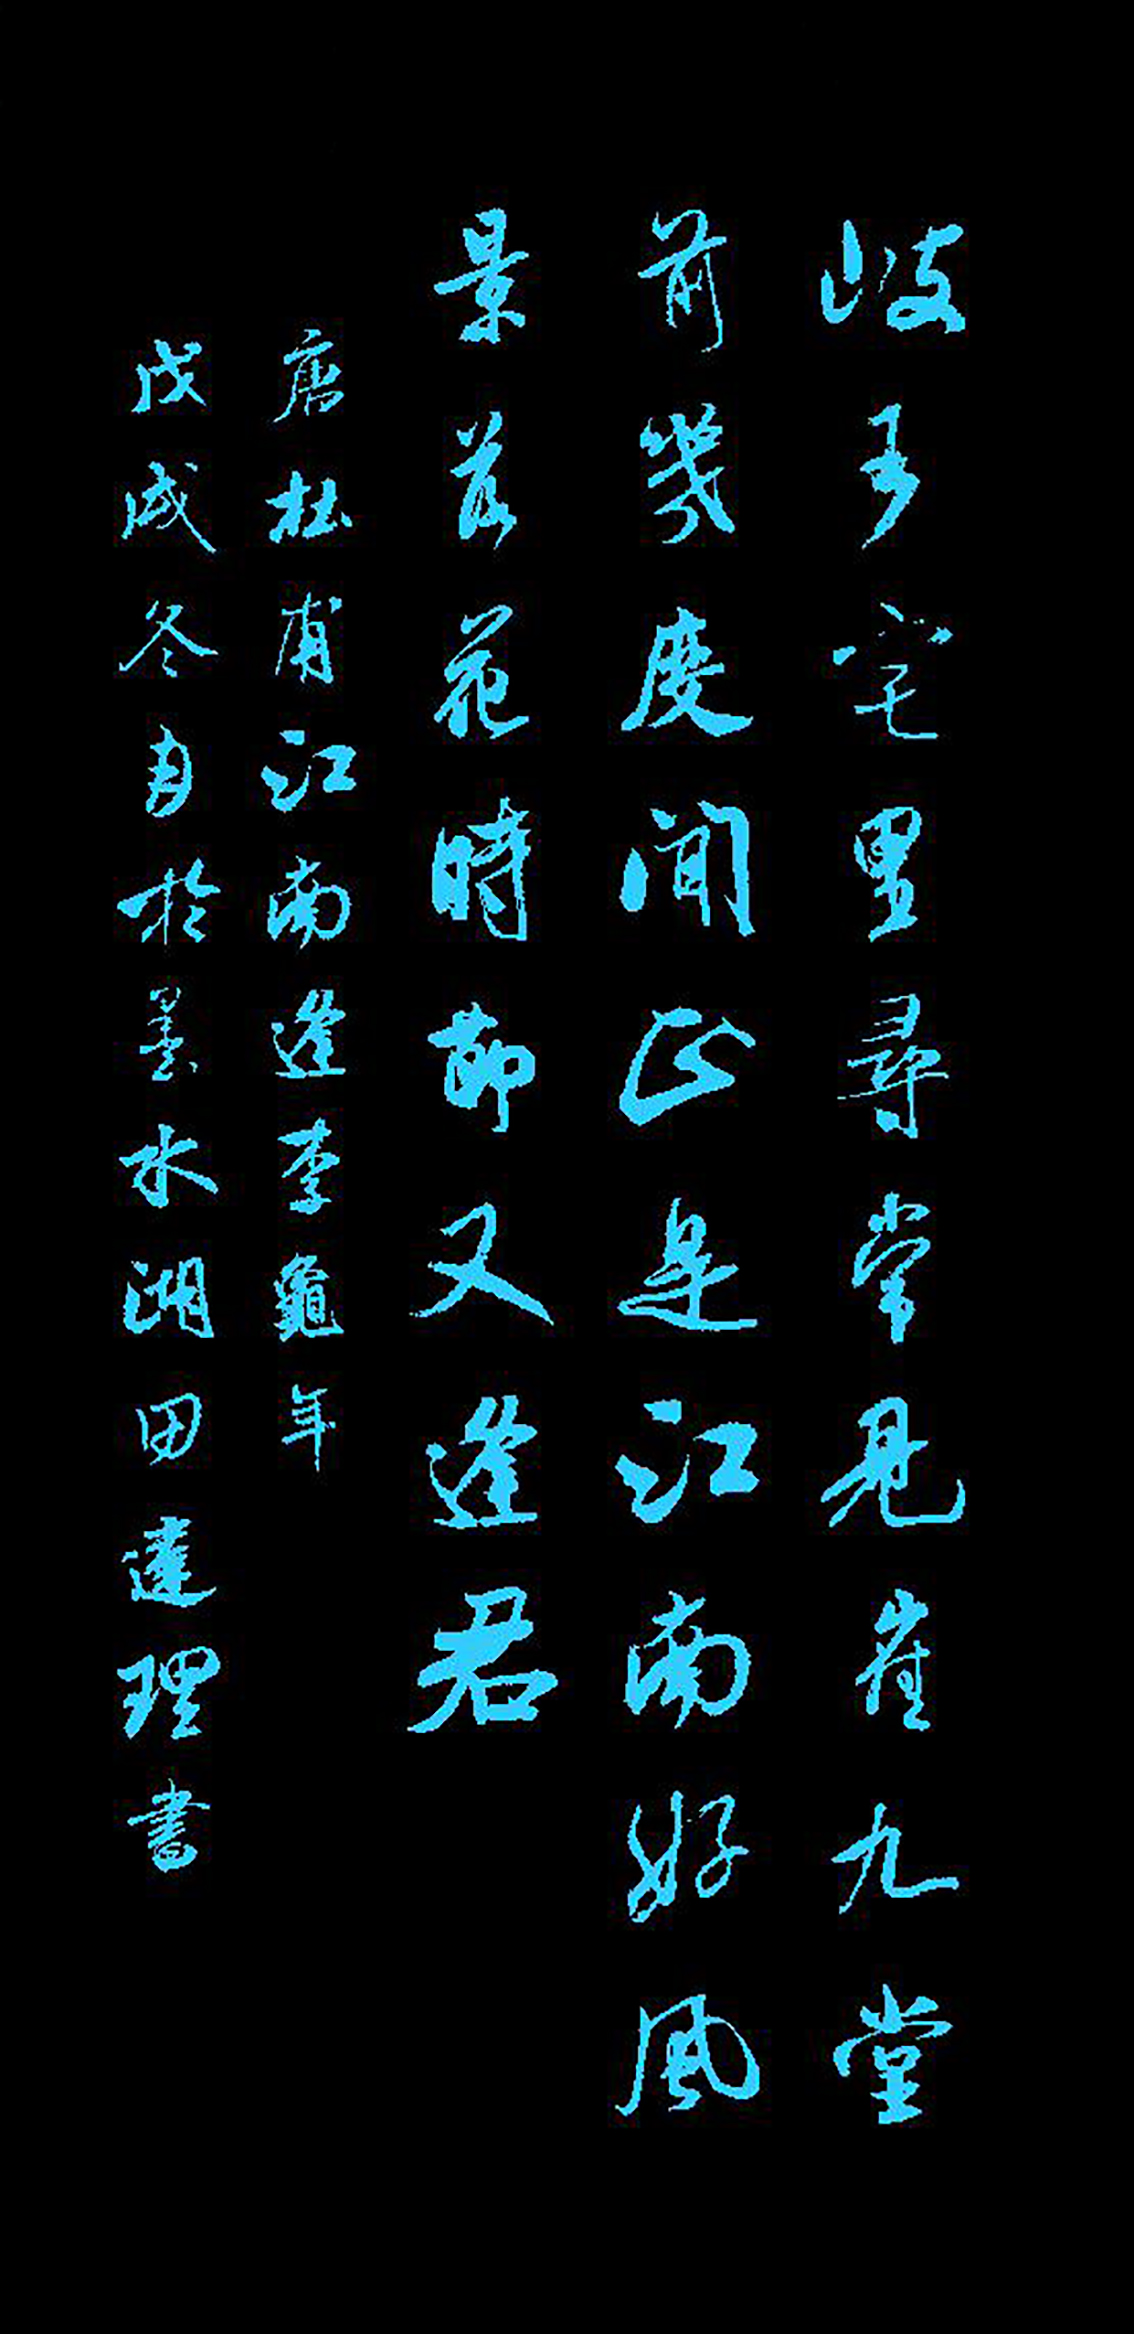 岐王宅里尋常見崔九堂
前幾度聞正是江南好風
景落花時節又逢君
唐杜甫江南逢李龜年
戊戌冬月於墨水湖田達理書